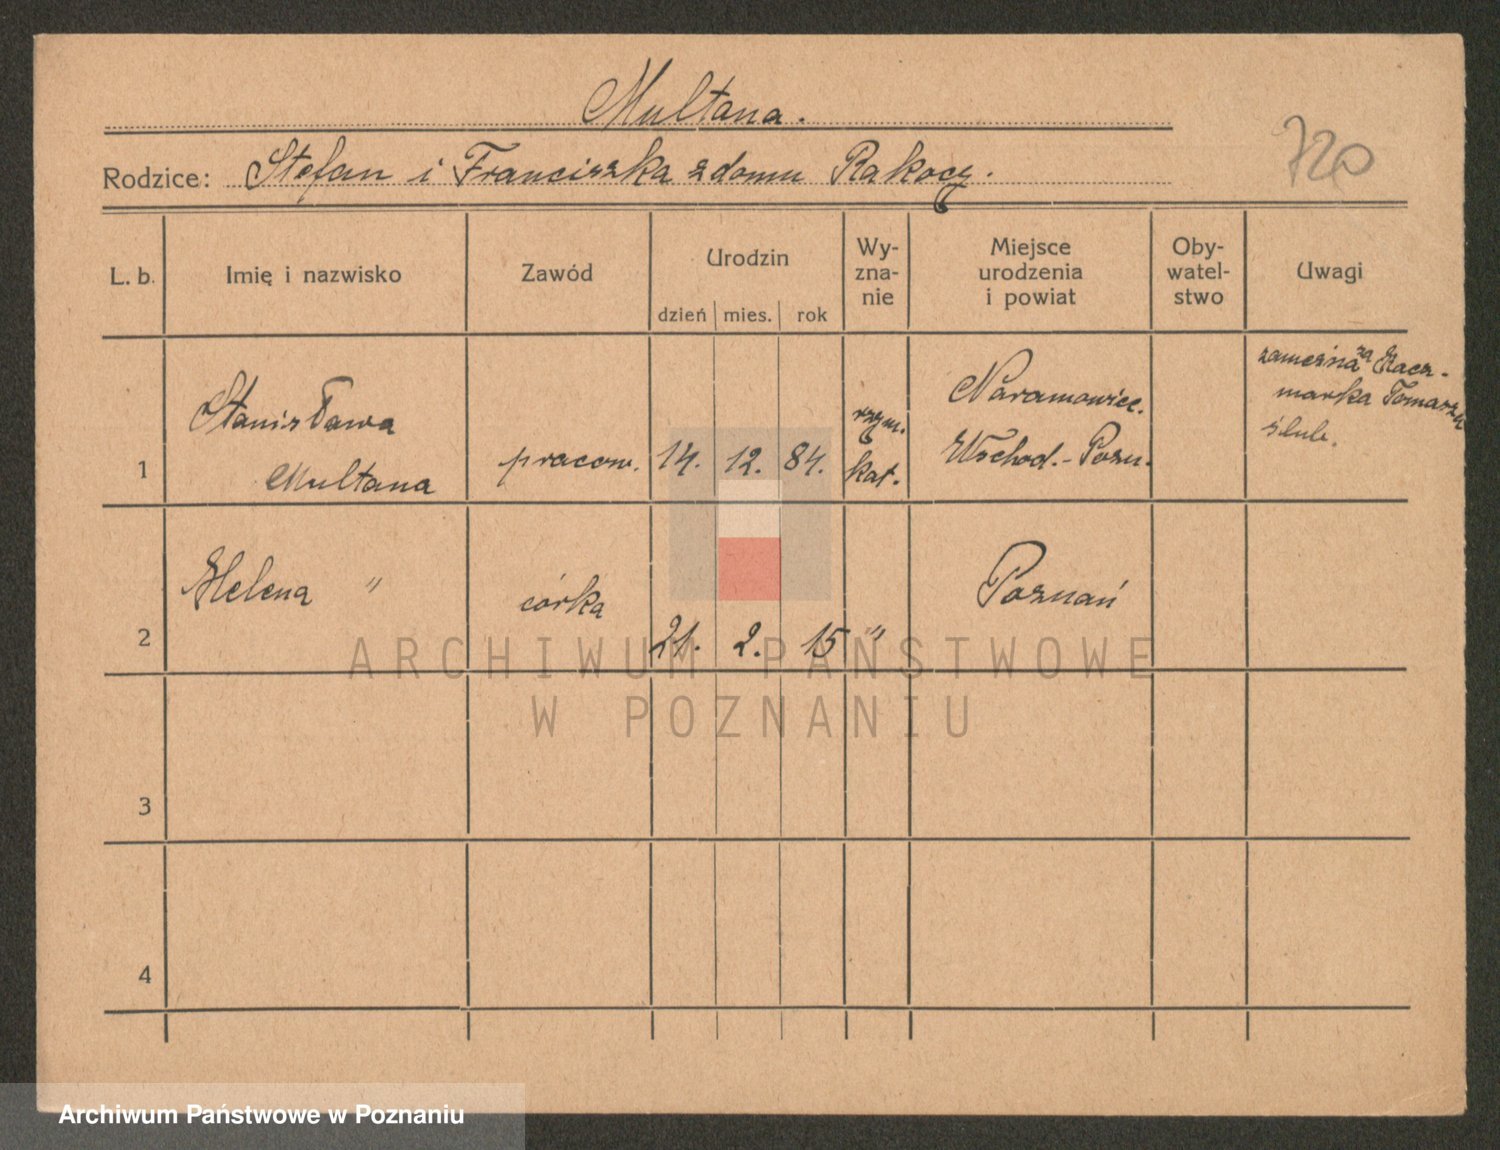 Multana.
720
Rodzice: Stefan i Franciszka z domu Rakocz.
L. b. Imię i nazwisko Zawód Urodzin Wy-zna-nie Miejsce urodzenia i powiat Oby-watel-stwo Uwagi
dzień mies. rok
1 Stanisława Multana pracow. 14. 12. 84. rzym. kat. Naramowice. Wschod.-Pozn. zamężna za Kacz-marka Tomasza ślub.
2 Helena " córka 21. 2. 15 " Poznań
3
4
ARCHIWUM PAŃSTWOWE
W POZNANIU
Archiwum Państwowe w Poznaniu